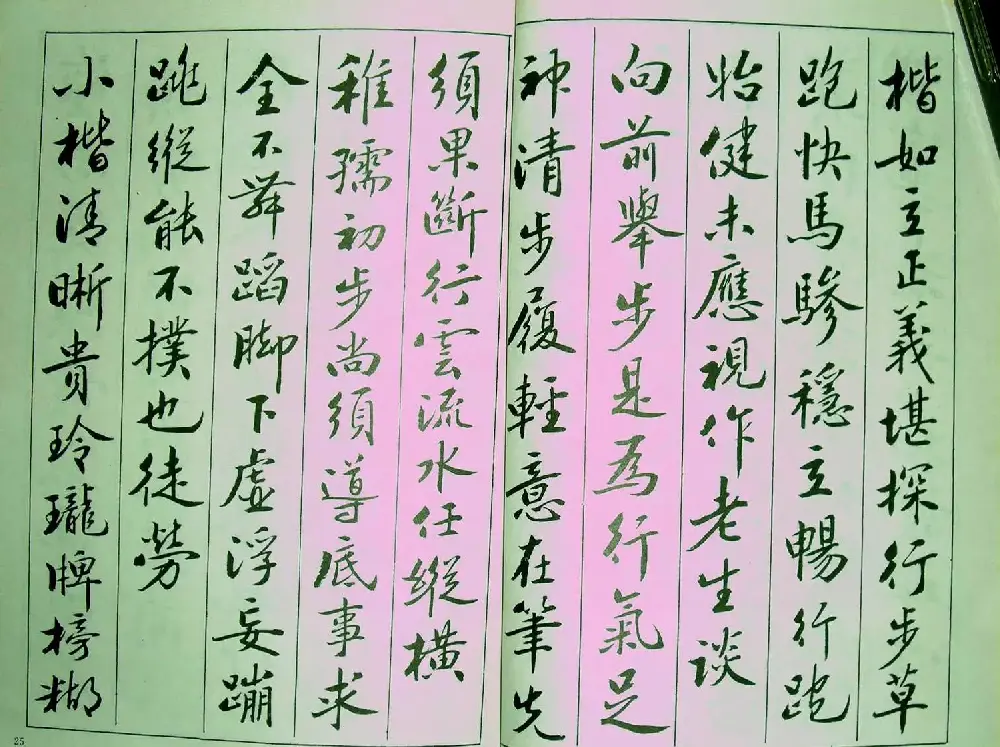 楷如立正義堪探行步草
跑快馬驂穩立暢行跑
始健未應視作老生談
向前舉步是為行氣足
神清步履輕意在筆先
須果斷行雲流水任縱橫
稚孺初步尚須導底事求
全不舞蹈脚下虛浮妄蹦
跳縱能不撲也徒勞
小楷清晰貴玲瓏牌榜糊
25